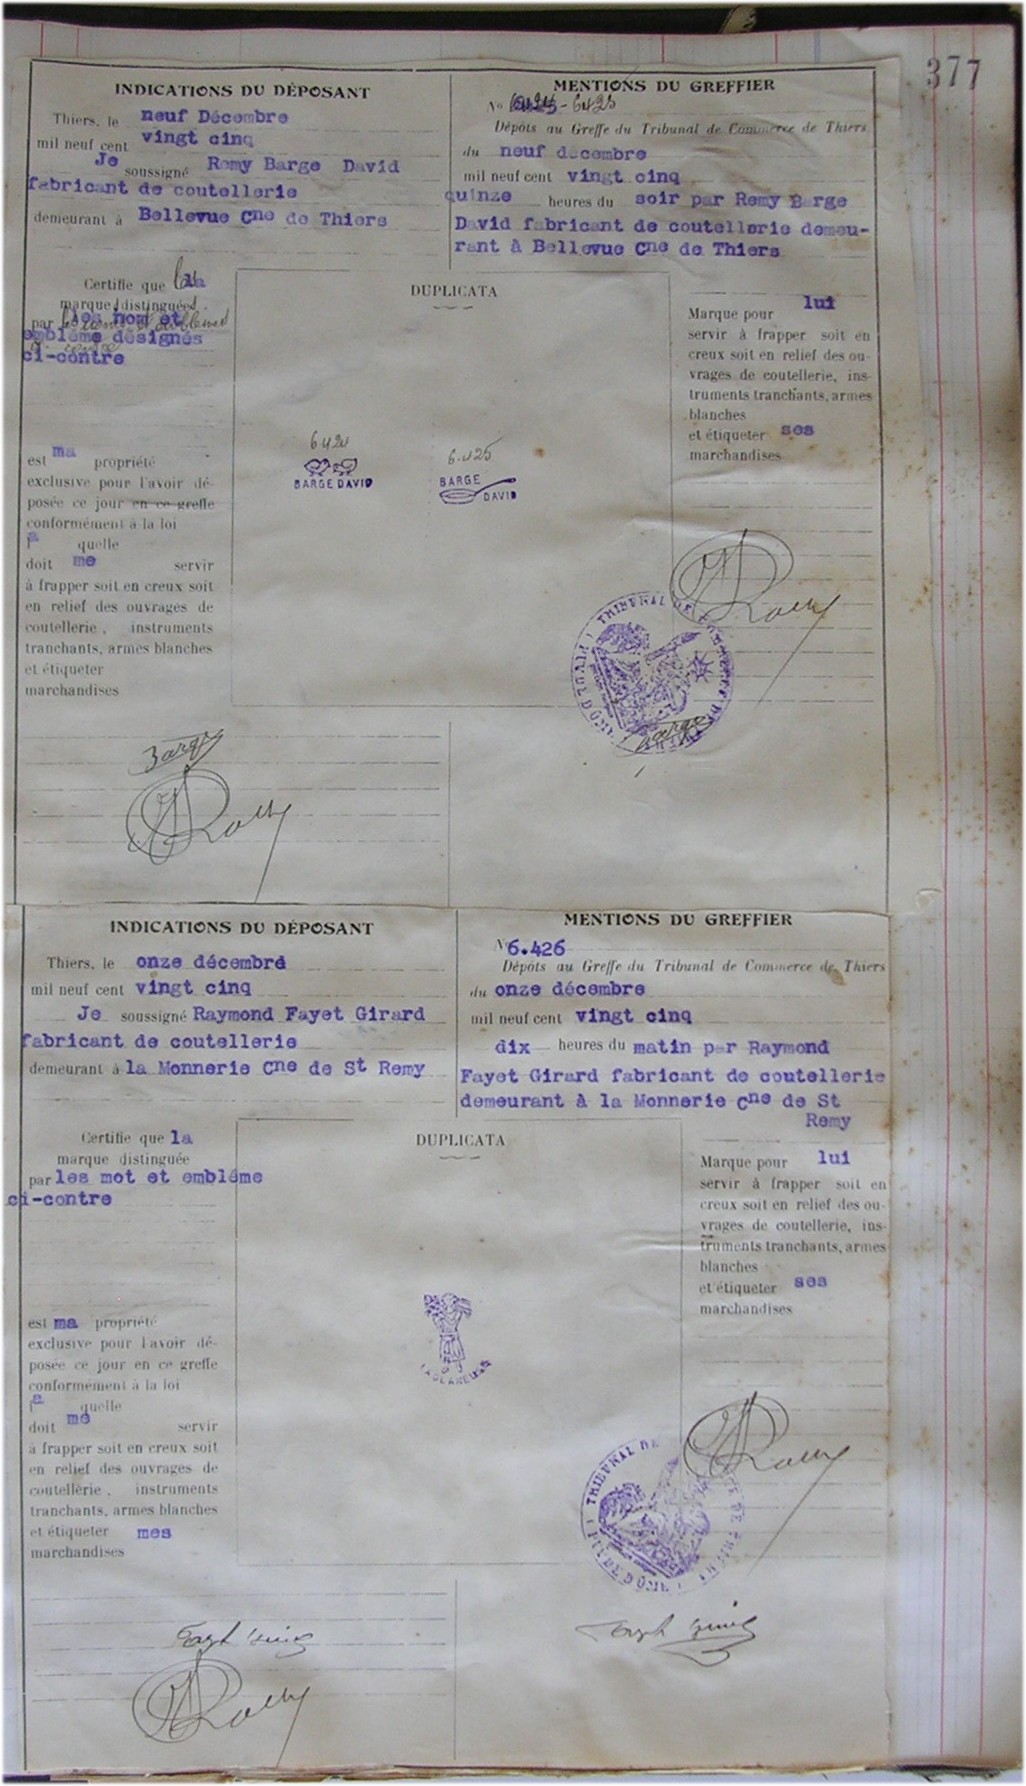 377
INDICATIONS DU DÉPOSANT
Thiers, le neuf Décembre
mil neuf cent vingt cinq
Je soussigné Remy Barge David
fabricant de coutellerie
demeurant à Bellevue Cne de Thiers
MENTIONS DU GREFFIER
No 6425
Dépôts au Greffe du Tribunal de Commerce de Thiers
du neuf décembre
mil neuf cent vingt cinq
quinze heures du soir par Remy Barge
David fabricant de coutellerie demeu-
rant à Bellevue Cne de Thiers
Certifie que la
marque distinguée
par les nom et
emblème désignés
ci-contre
est ma propriété
exclusive pour l'avoir dé-
posée ce jour en ce greffe
conformément à la loi
la quelle
doit me servir
à frapper soit en creux soit
en relief des ouvrages de
coutellerie, instruments
tranchants, armes blanches
et étiqueter
marchandises
DUPLICATA
6424
BARGE DAVID
6.425
BARGE
DAVID
Marque pour lui
servir à frapper soit en
creux soit en relief des ou-
vrages de coutellerie, ins-
truments tranchants, armes
blanches
et étiqueter ses
marchandises
TRIBUNAL DE COMMERCE DE
PUY DE DÔME
Barge
Barge
INDICATIONS DU DÉPOSANT
Thiers, le onze décembre
mil neuf cent vingt cinq
Je soussigné Raymond Fayet Girard
fabricant de coutellerie
demeurant à la Monnerie Cne de St Remy
MENTIONS DU GREFFIER
No 6.426
Dépôts au Greffe du Tribunal de Commerce de Thiers
du onze décembre
mil neuf cent vingt cinq
dix heures du matin par Raymond
Fayet Girard fabricant de coutellerie
demeurant à la Monnerie Cne de St
Remy
Certifie que la
marque distinguée
par les mot et emblème
ci-contre
est ma propriété
exclusive pour l'avoir dé-
posée ce jour en ce greffe
conformément à la loi
la quelle
doit me servir
à frapper soit en creux soit
en relief des ouvrages de
coutellerie, instruments
tranchants, armes blanches
et étiqueter mes
marchandises
DUPLICATA
LA GLANEUSE
Marque pour lui
servir à frapper soit en
creux soit en relief des ou-
vrages de coutellerie, ins-
truments tranchants, armes
blanches
et étiqueter ses
marchandises
TRIBUNAL DE
DE THIERS
PUY DE DÔME